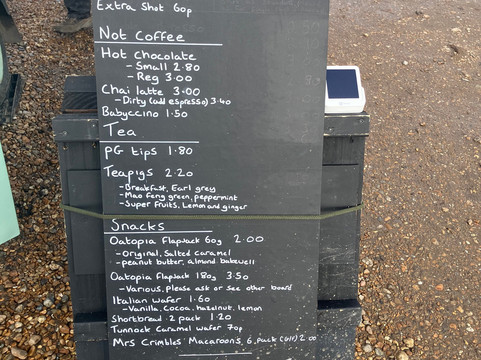 Extra Shot 60p
Not Coffee
Hot Chocolate
- Small 2.80
- Reg 3.00
Chai latte 3.00
- Dirty (add espresso) 3.40
Babyccino 1.50
Tea
PG tips 1.80
Teapigs 2.20
- Breakfast, Earl grey
- Mao feng green, peppermint
- Super fruits, Lemon and ginger
Snacks
Oatopia Flapjack 60g 2.00
- Original, Salted Caramel
- peanut butter, almond bakewell
Oatopia Flapjack 180g 3.50
- Various, please ask or see other board
Italian wafer 1.60
- Vanilla, Cocoa, hazelnut, lemon
Shortbread 2 pack 1.20
Tunnock Caramel wafer 70p
Mrs Crimbles Macaroons, 6 pack (G/F) 2.00